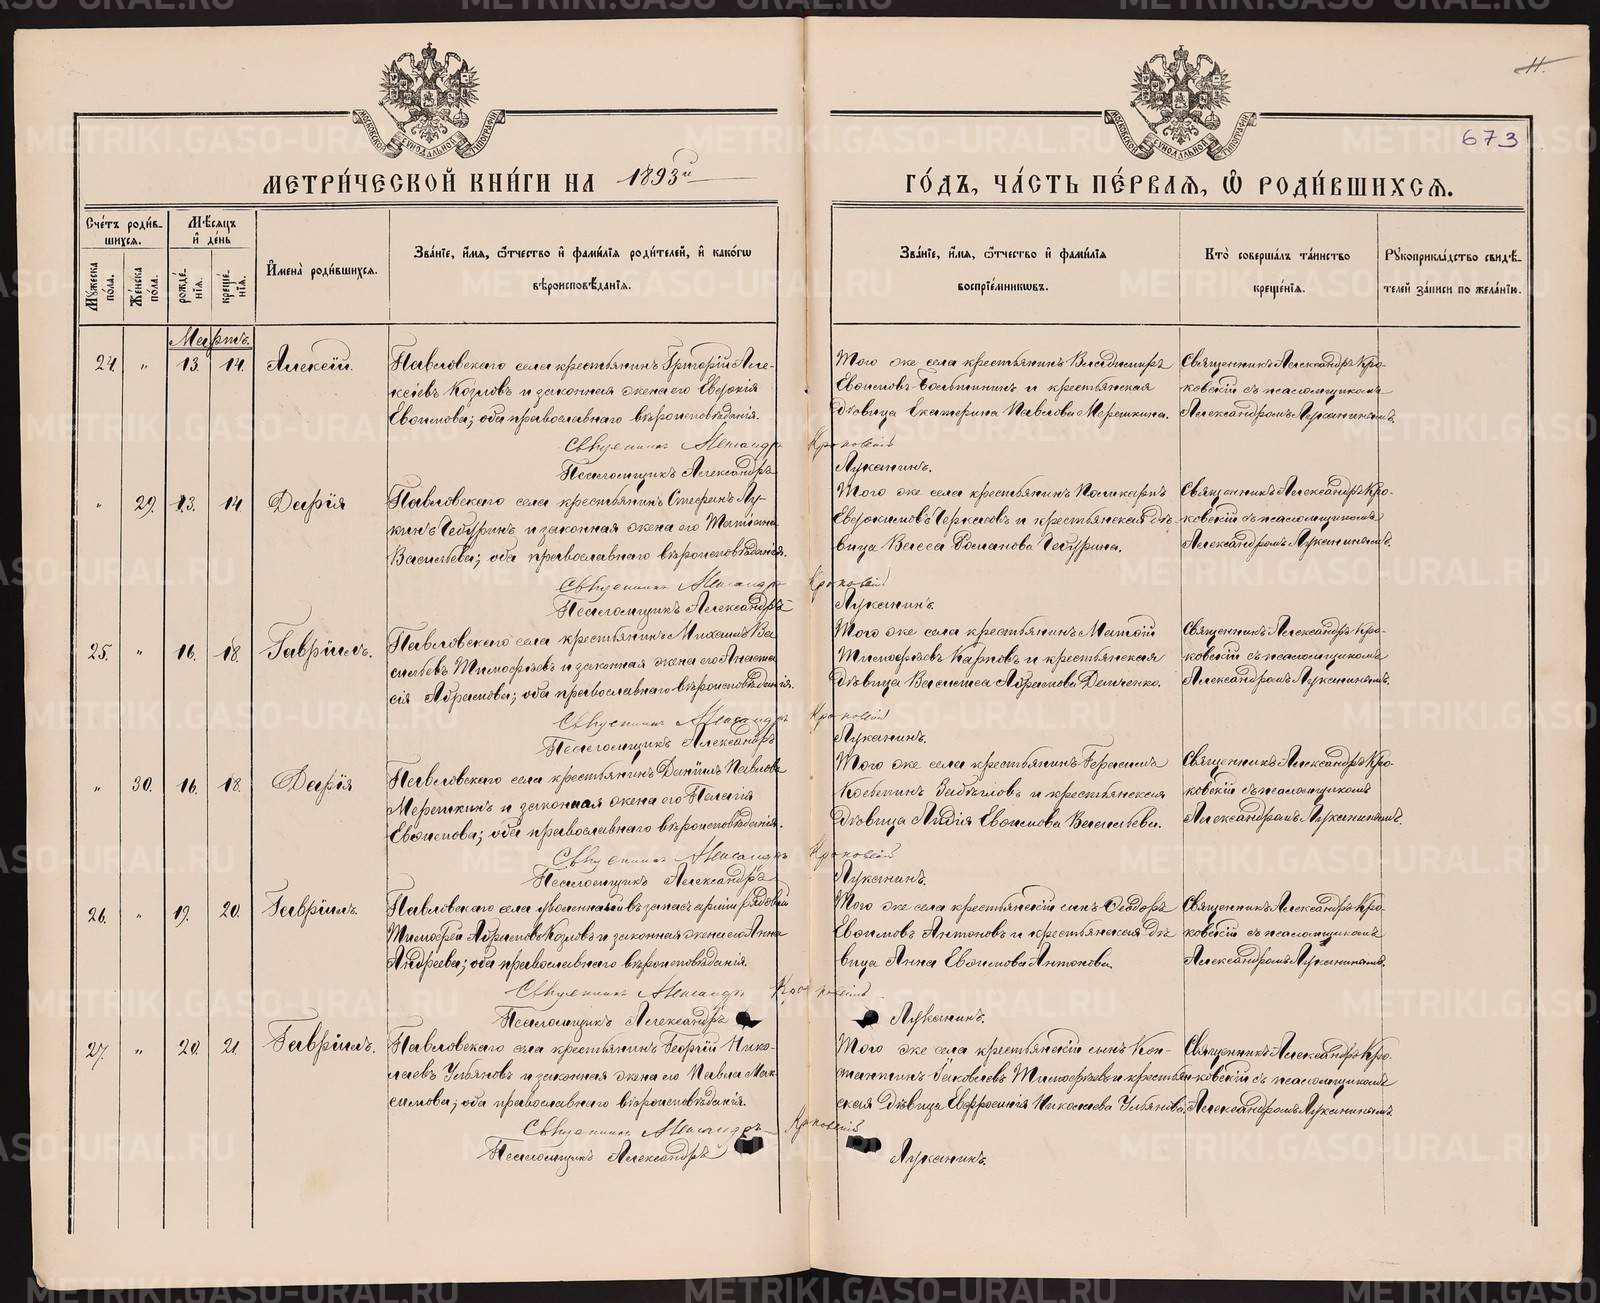 11.
673
МЕТРИ́ЧЕСКОЙ КНИ́ГИ НА 1893й
ГО́ДЪ, ЧА́СТЬ ПЕ́РВАЯ, Ѽ РОДИ́ВШИХСЯ.
Сче́тъ роди́в-
шихся.
Мѣ́сяцъ
и҆ де́нь
Мꙋ́жеска по́ла.
Же́нска по́ла.
рожде́нїя.
креще́нїя.
И҆мена̀ роди́вшихся.
Зва́нїе, и҆́мя, ѻ҆́тчество и҆ фами́лїя роди́телей, и҆ како́гѡ
вѣроисповѣ́данїя.
Зва́нїе, и҆́мя, ѻ҆́тчество и҆ фами́лїя
воспрїе́мникѡвъ.
Кто̀ соверша́лъ та́инство
креще́нїя.
Рꙋкоприкла́дство свидѣ́-
телей за́писи по жела́нїю.
Мартъ.
24. " 13. 14. Алексій.
Павловскаго села крестьянинъ Григорій Але-
ксѣевъ Козловъ и законная жена его Евдокія
Евѳимова; оба православнаго вѣроисповѣданія.
Того же села крестьянинъ Владимиръ
Евѳимовъ и крестьянская
дѣвица Екатерина Павлова Мерешкина.
Священникъ Александръ Кро-
ковскій съ псаломщикомъ
Александромъ Луканинымъ.
Священникъ Александръ Кроковскій
Псаломщикъ Александръ Луканинъ.
" 29. 13. 14. Дарія
Павловскаго села крестьянинъ Стефанъ Лу-
кинъ Чебуринъ и законная жена его Татіана
Васильева; оба православнаго вѣроисповѣданія.
Того же села крестьянинъ Поликарпъ
Евдокимовъ Черкасовъ и крестьянская дѣ-
вица Васса Романова Чебурина.
Священникъ Александръ Кро-
ковскій съ псаломщикомъ
Александромъ Луканинымъ.
Священникъ Александръ Кроковскій
Псаломщикъ Александръ Луканинъ.
25. " 16. 18. Гавріилъ.
Павловскаго села крестьянинъ Михаилъ Ва-
сильевъ Тимофѣевъ и законная жена его Анаста-
сія Абрамова; оба православнаго вѣроисповѣданія.
Того же села крестьянинъ Матѳій
Тимофѣевъ Карповъ и крестьянская
дѣвица Васса Абрамова Демченко.
Священникъ Александръ Кро-
ковскій съ псаломщикомъ
Александромъ Луканинымъ.
Священникъ Александръ Кроковскій
Псаломщикъ Александръ Луканинъ.
" 30. 16. 18. Дарія
Павловскаго села крестьянинъ Даніилъ Павловъ
Мерешкинъ и законная жена его Пелагія
Евѳимова; оба православнаго вѣроисповѣданія.
Того же села крестьянинъ Герасимъ
Косьминъ Забѣгловъ и крестьянская
дѣвица Лидія Евѳимова Васильева.
Священникъ Александръ Кро-
ковскій съ псаломщикомъ
Александромъ Луканинымъ.
Священникъ Александръ Кроковскій
Псаломщикъ Александръ Луканинъ.
26. " 19. 20. Гавріилъ.
Павловскаго села уволенный въ запасъ арміи рядовой
Тимофей Абрамовъ Козловъ и законная жена его Анна
Андреева; оба православнаго вѣроисповѣданія.
Того же села крестьянскій сынъ Ѳеодоръ
Евѳимовъ Антоновъ и крестьянская дѣ-
вица Анна Евѳимова Антонова.
Священникъ Александръ Кро-
ковскій съ псаломщикомъ
Александромъ Луканинымъ.
Священникъ Александръ Кроковскій
Псаломщикъ Александръ Луканинъ.
27. " 20. 21. Гавріилъ.
Павловскаго села крестьянинъ Георгій Нико-
лаевъ Ульяновъ и законная жена его Павла Мак-
симова; оба православнаго вѣроисповѣданія.
Того же села крестьянскій сынъ Кон-
стантинъ Іаковлевъ Тимофѣевъ и крестьян-
ская дѣвица Евфросинія Николаева Ульянова.
Священникъ Александръ Кро-
ковскій съ псаломщикомъ
Александромъ Луканинымъ.
Священникъ Александръ Кроковскій
Псаломщикъ Александръ Луканинъ.
METRIKI.GASO-URAL.RU